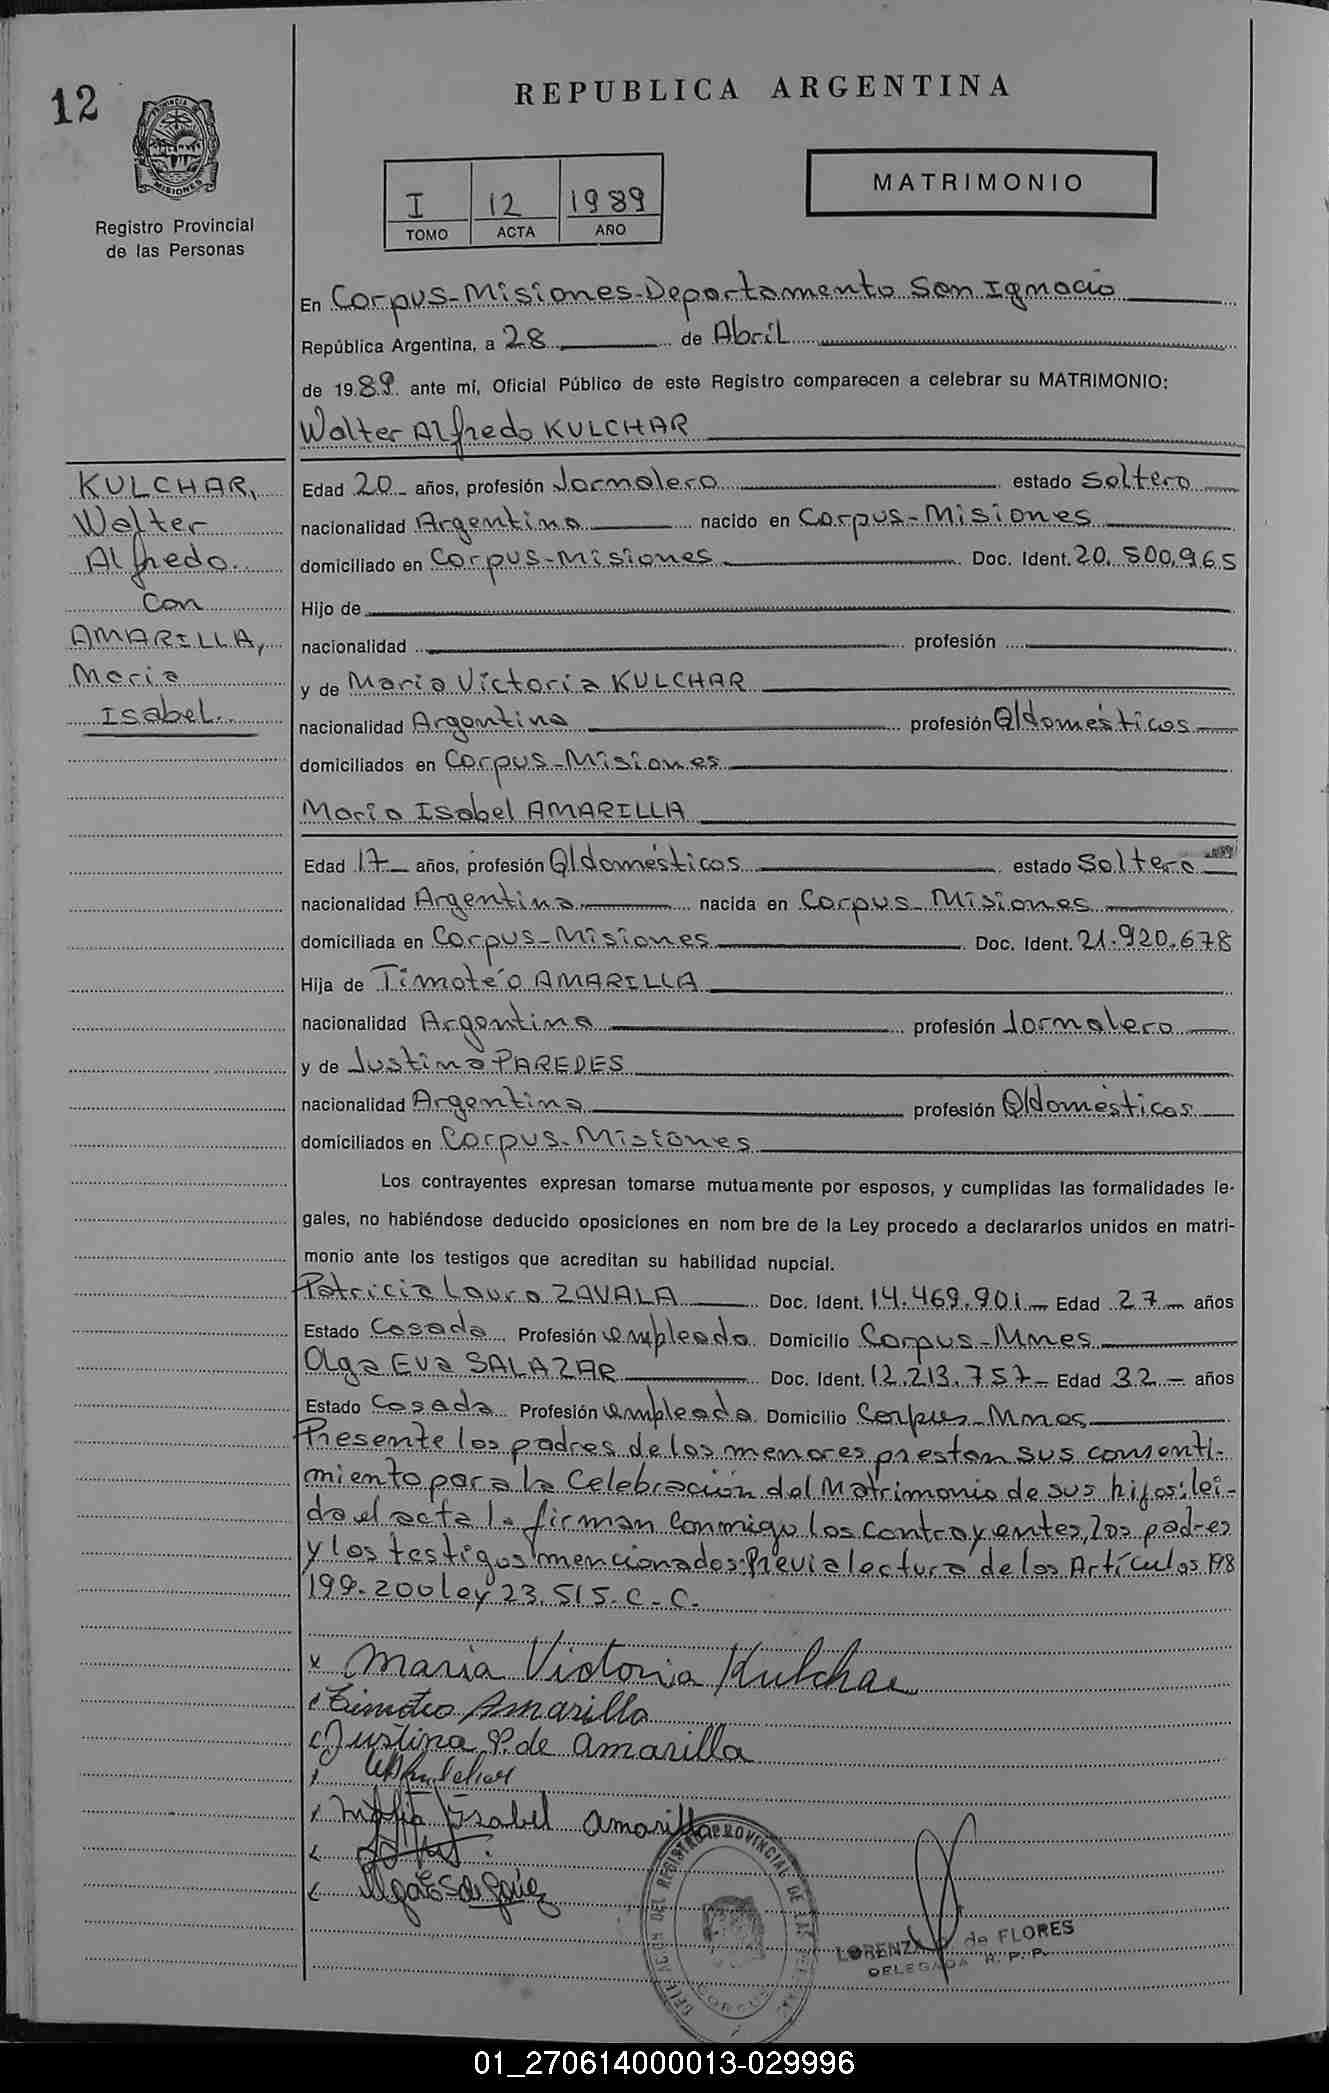 12
PROVINCIA DE MISIONES
Registro Provincial
de las Personas
REPUBLICA ARGENTINA
I 12 1989
TOMO ACTA AÑO
MATRIMONIO
En Corpus-Misiones-Departamento San Ignacio
República Argentina, a 28 de Abril
de 1989 ante mí, Oficial Público de este Registro comparecen a celebrar su MATRIMONIO:
Walter Alfredo KULCHAR
KULCHAR,
Walter
Alfredo
Con
AMARILLA,
Maria
Isabel.
Edad 20 años, profesión Jornalero estado Soltero
nacionalidad Argentina nacido en Corpus-Misiones
domiciliado en Corpus-Misiones Doc. Ident. 20.500.965
Hijo de
nacionalidad profesión
y de Maria Victoria KULCHAR
nacionalidad Argentina profesión Q/domésticos
domiciliados en Corpus-Misiones
Maria Isabel AMARILLA
Edad 17 años, profesión Q/domésticos estado Soltera
nacionalidad Argentina nacida en Corpus-Misiones
domiciliada en Corpus-Misiones Doc. Ident. 21.920.678
Hija de Timotéo AMARILLA
nacionalidad Argentina profesión Jornalero
y de Justina PAREDES
nacionalidad Argentina profesión Q/domésticos
domiciliados en Corpus-Misiones
Los contrayentes expresan tomarse mutuamente por esposos, y cumplidas las formalidades le-
gales, no habiéndose deducido oposiciones en nom bre de la Ley procedo a declararlos unidos en matri-
monio ante los testigos que acreditan su habilidad nupcial.
Patricia Laura ZAVALA Doc. Ident. 14.469.901 Edad 27 años
Estado Casada Profesión empleada Domicilio Corpus-Mnes
Olga Eva SALAZAR Doc. Ident. 12.213.757 Edad 32 años
Estado Casada Profesión empleada Domicilio Corpus-Mnes
Presente los padres de los menores prestan sus consenti-
miento para la Celebración del Matrimonio de sus hijos: lei-
da el acta la firman conmigo los Contrayentes, los padres
y los testigos mencionados: Previa lectura de los Artículos 198
199-200 ley 23.515.C.C.
x Maria Victoria Kulchar
Timoteo Amarilla
Justina P. de Amarilla
Kulchar
Maria Isabel Amarilla
DELEGACION DEL REGISTRO PROVINCIAL DE LAS
CORPUS
LORENZA de FLORES
DELEGADA R. P. P.
01_270614000013-029996